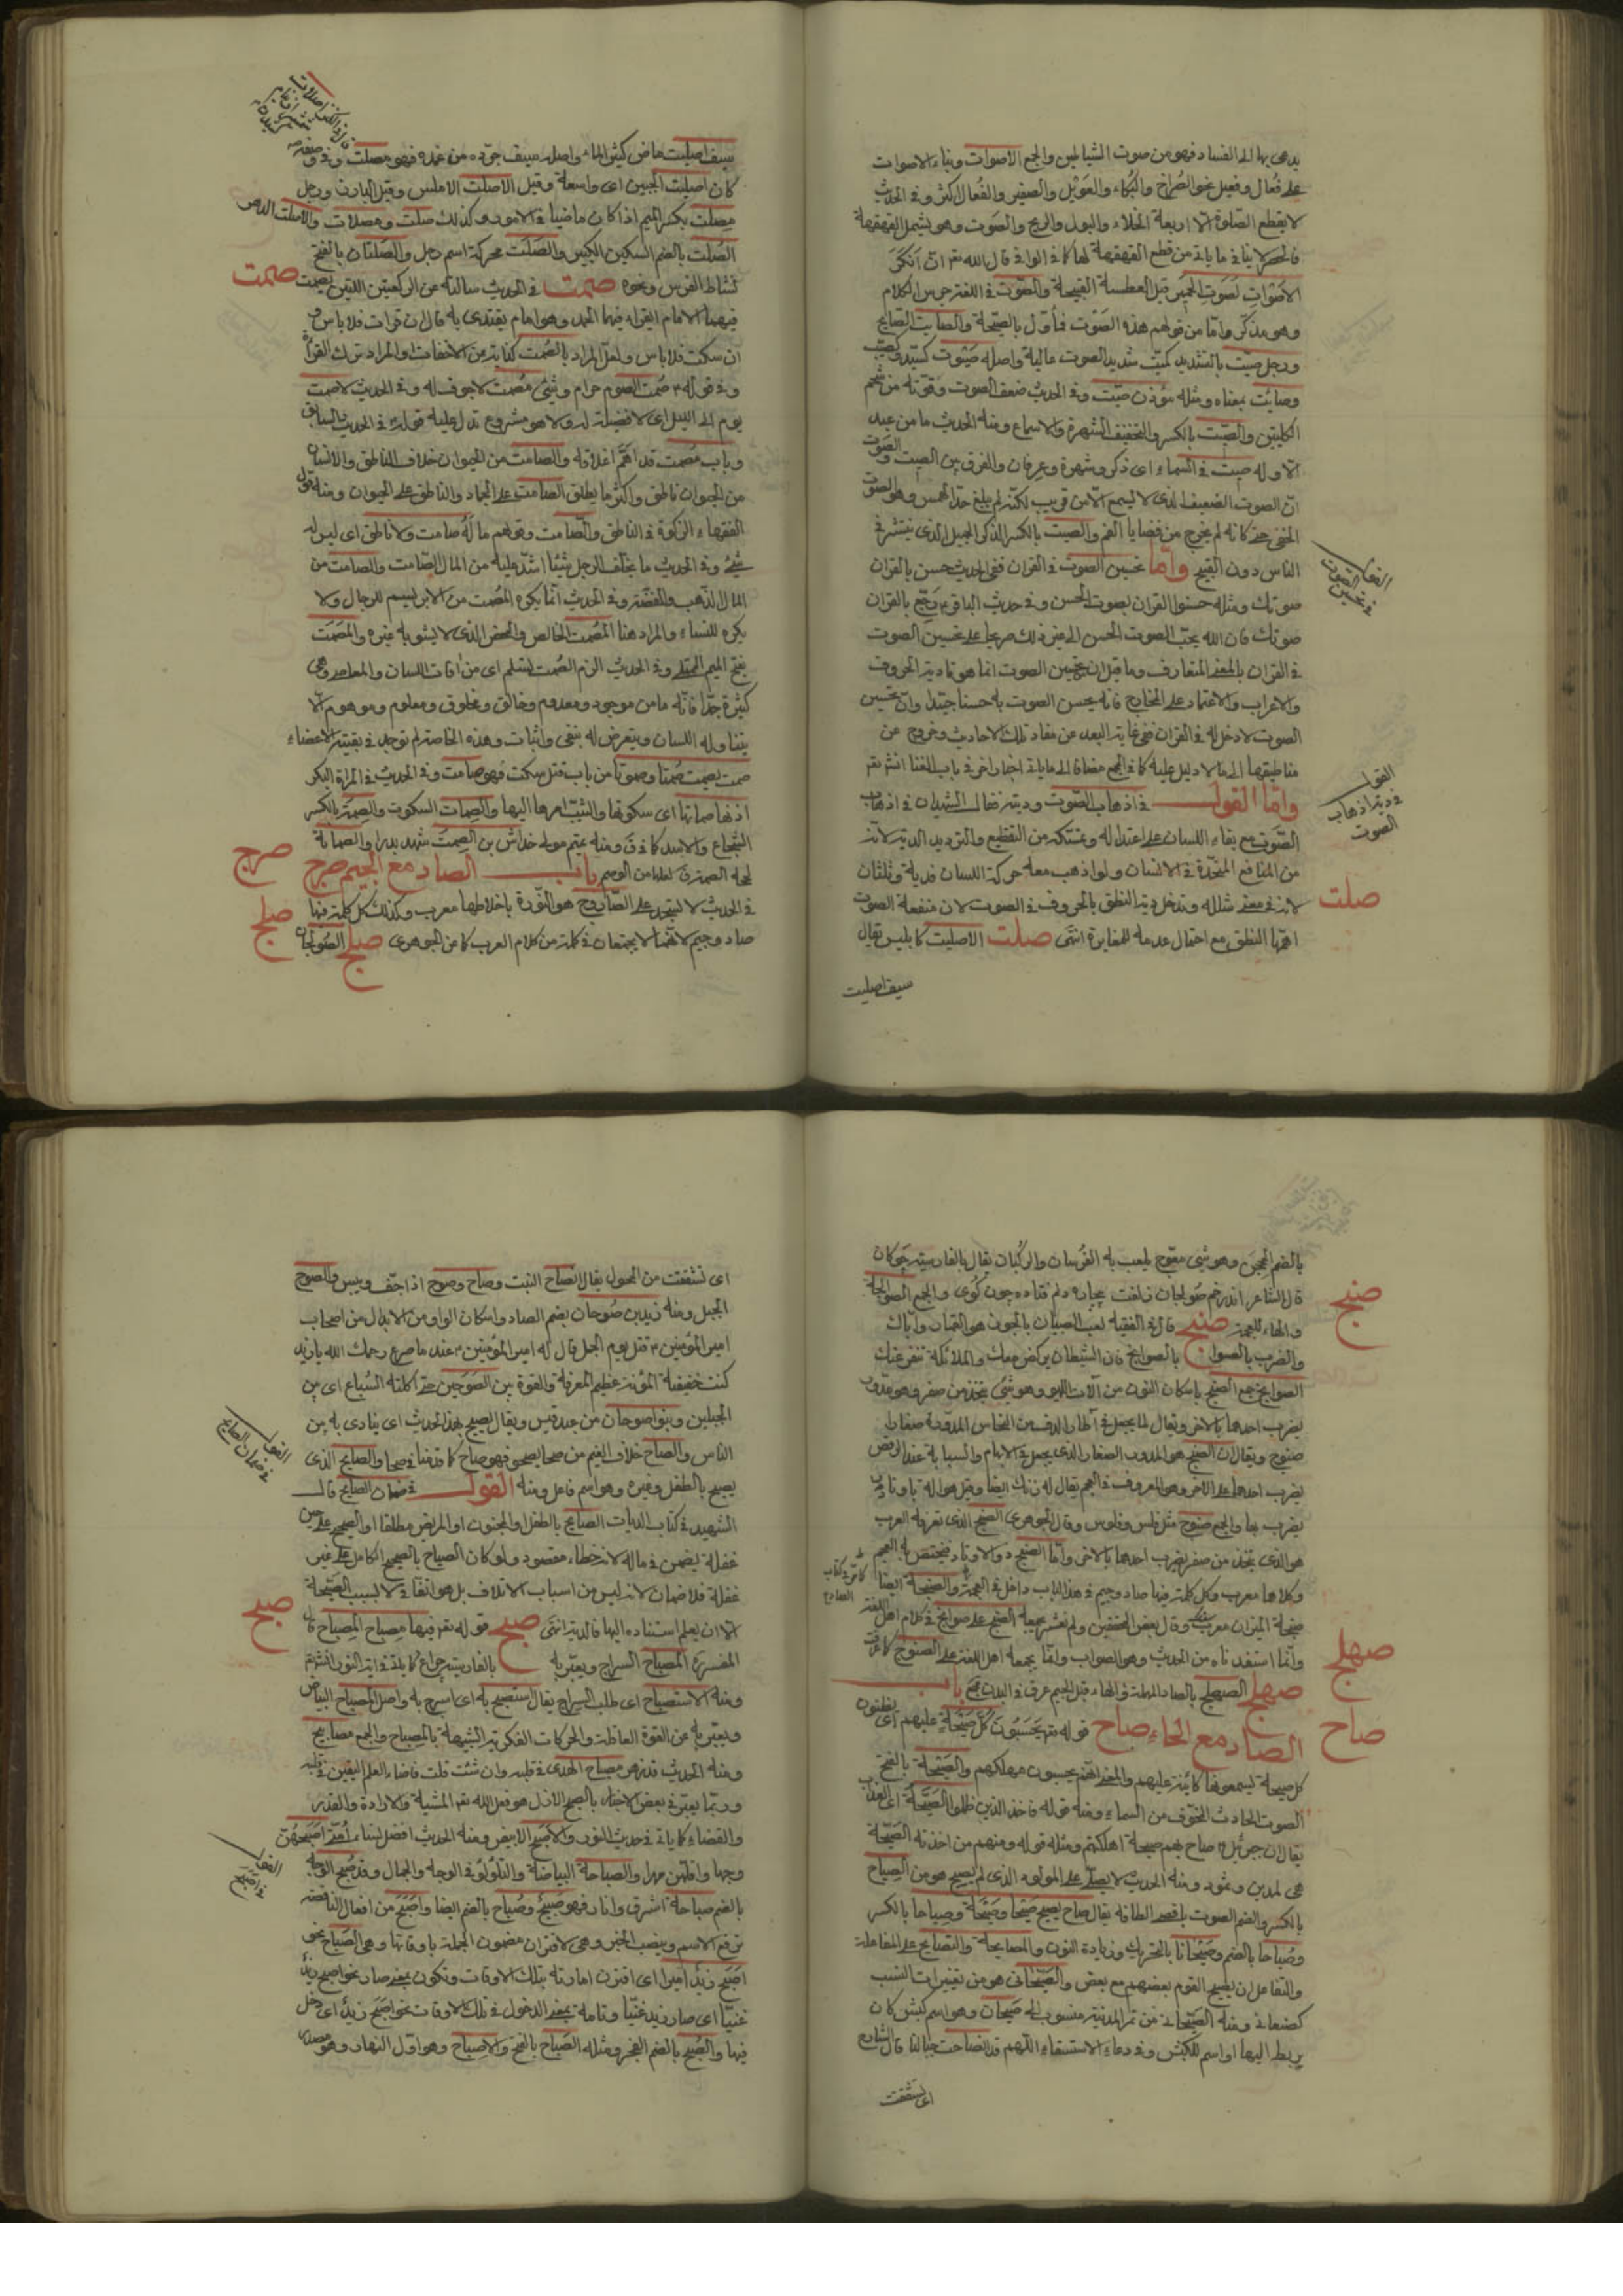 يدعى بها الى الفساد فهو من صوت الشياطين والجمع الاصوات وبناء الاصوات
على فعال وفعيل نحو الصراخ والبكاء والعويل والصفير والفعال اكثر وفى الحديث
لا يقطع الصلوة الا اربعة الخلاء والبول والريح والصوت وهو يشتمل القهقهة
فالحصر لا ينافى ما ياتى من قطع القهقهة لها كما فى الوافى قال الله تعر ان انكر
الاصوات لصوت الحمير قيل العطسة القبيحة والصوت فى اللغة جرس الكلام
وهو مذكر واما من قولهم هذه الصوت فأول بالصيحة والصايت الصايح
ورجل صيت بالتشديد كميت شديد الصوت عالية واصله صيوت كسيد
وصايت بمعناه ومثله مؤذن صيت وفى الحديث ضعف الصوت وقوته من شحم
الكليتين والصيت بالكسر والتخفيف الشهرة والاسماع ومنه الحديث ما من عبد
الا وله صيت فى السماء اى ذكر وشهرة وعرفان والفرق بين الصيت والصوت
ان الصوت الضعيف الذى لا يسمع الا من قريب لكنه لم يبلغ حد الهمس وهو الصوت
الخفى حتى كانه لم يخرج من فضايا الفم والصيت بالكسر الذكر الجميل الذى ينتشر فى
الناس دون القبيح واما تحسين الصوت فى القران ففى الحديث حسن بالقران
صوتك ومثله حسنوا القران بصوت الحسن وفى حديث الباقر ع رجع بالقران
صوتك فان الله يحب الصوت الحسن الى غير ذلك صريحا على تحسين الصوت
فى القران بالمعنى المتعارف وما قيل ان تحسين الصوت انما هو تادية الحروف
والاعراب والاعتماد على المخارج فانه يحسن الصوت به حسنا جيدا وان تحسين
الصوت لا دخل له فى القران ففى غاية البعد عن مفاد تلك الاحاديث وخروج عن
مناطيقها الى ما لا دليل عليه كما فى المجمع مضافا الى ما ياتى اخبار اخر فى باب الغنا انش تعر
واما القول فى اذهاب الصوت وديته فقال الشهيدان فى اذهاب
الصوت مع بقاء اللسان على اعتداله وتمكنه من التقطيع والترديد الدية لانه
من المنافع المتحدة فى الانسان ولو اذهب معه حركة اللسان فدية وثلثان
لانه فى معنى شلله وتدخل دية النطق بالحروف فى الصوت لان منفعة الصوت
اهمها النطق مع احتمال عدمه للمغايرة انتهى صلت الاصليت كابليس يقال
سيف اصليت
القول فى تحسين الصوت
القول فى دية اذهاب الصوت
صلت
سيف اصليت ماض كثير الماء واصله سيف جرده من غمده فهو مصلت وفى
كان اصليت الجبين اى واسعة وقيل الاصلت الاملس وقيل البارز ورجل
مصلت بكسر الميم اذا كان ماضيا فى الامور وكذلك صلت ومصلات والاصلت اللص
الصلت بالضم السكين الكبير والصلت محركة اسم رجل والصلتان بالفتح
نشاط الفرس ونحوه صمت فى الحديث سالته عن الركعتين اللتين يصمت
فيهما الامام ايقراء فيهما الحمد وهو امام يقتدى به قال ان قرات فلا باس و
ان سكت فلا باس ولعل المراد بالصمت كناية من الاخفات او المراد ترك القرائة
وفى قوله ع صمت الصوم حرام وشئ مصمت لا جوف له وفى الحديث لا صمت
يوم الى الليل اى لا فضيلة له ولا هو مشروع تدل عليه قوله ع فى الحديث السابق
وباب مصمت قد اهم اغلاقه والصامت من الحيوان خلاف الناطق والانسان
من الحيوان ناطق واكثر ما يطلق الصامت على الجماد والناطق على الحيوان ومنه قول
الفقهاء الزكوة فى الناطق والصامت وقولهم ماله صامت ولا ناطق اى ليس له
شئ وفى الحديث ما يخلف الرجل شيئا اشد عليه من المال الصامت والصامت من
المال الذهب والفضة وفى الحديث انما يكره المصمت من الابريسم للرجال ولا
يكره للنساء والمراد هنا المصمت الخالص المحض الذى لا يشوبه غيره والمصمت
بفتح الميم الممتلى وفى الحديث الزم الصمت تسلم اى من افات اللسان والمعاصى وهى
كثيرة جدا فانه ما من موجود ومعدوم وخالق ومخلوق ومعلوم وموهوم الا
يتناوله اللسان ويتعرض له بنفى واثبات وهذه الخاصة لم توجد فى بقية الاعضاء
صمت يصمت صمتا وصموتا من باب قتل سكت فهو صامت وفى الحديث فى المراة البكر
اذنها صماتها اى سكوتها والثيب امرها اليها والصمات السكوت والصمة بالكسر
الشجاع والاسد كما فى ق ومنه عتم مولى خداش بن الصمت شهد بدرا والصماتة
باب الصاد مع الجيم صرج
فى الحديث لا يسجد على الصاروج هو النورة باخلاطها معرب وكذلك كل كلمة فيها
صاد وجيم لانهما لا يجتمعان فى كلمة من كلام العرب كما من الجوهرى صلج الصولجان
صمت
صرج
صلج
بالضم المحجن وهو شئ معوج يلعب به الفرسان والركبان يقال بالفارسيه چوكان
قال الشاعر اندر خم صولجان زلفت بيچاره دلم فتاده چون كوى والجمع الصوالجة
والهاء للعجمة صنج قال فى الفقيه لعب الصبيان بالجون هو القمار واياك
والضرب بالصوانج فان الشيطان يركض معك والملائكة تنفر عنك
الصوانج جمع الصنج باسكان النون من آلات اللهو وهو شئ يتخذ من صفر وهو مدور
يضرب احدهما بالاخر ويقال لما يجعل فى اطار الدف من النحاس المدورة صغار
صنوج ويقال ان الصنج هو المدور الصغار الذى يجعل فى الابهام والسبابة عند الرقص
يضرب احدهما على الاخر وهو المعروف فى العجم يقال له زنك ايضا وقيل هو الة باوتار
يضرب بها والجمع صنوج مثل فلس وفلوس وقال الجوهرى الصنج الذى تعرفه العرب
هو الذى يتخذ من صفر يضرب احدهما بالاخر واما الصنج ذو الاوتار فيختص به العجم
وكلاهما معرب وكل كلمة فيها صاد وجيم فى هذا الباب داخل فى العجمة والصنجة ايضا
صنجة الميزان معرب وقال بعض المحققين ولم نعثر بجمعه الصنج على صوانج فى كلام اهل اللغة
وانما استفدناه من الحديث وهو الصواب وانما يجمعه اهل اللغة على الصنوج كما عرفت
صهلج الصهلج بالصاد المهملة والهاء قبل الجيم عرق فى البدن باب
الصاد مع الحاء صاح قوله تعر يحسبون كل صيحة عليهم اى يظنون
كل صيحة يسمعونها كائنة عليهم والمعنى انهم يحسبون مهلكهم والصيحة بالفتح
الصوت الحادث المخوف من السماء ومنه قوله فاخذ الذين ظلموا الصيحة اى العذاب
يقال ان جبرئيل ع صاح بهم صيحة اهلكتهم ومثله قوله ومنهم من اخذته الصيحة
هى لمدين وثمود ومنه الحديث لا يصلى على المولود الذى لم يصح هو من الصياح
بالكسر والضم الصوت باقصى الطاقة يقال صاح يصيح صيحا وصيحة وصياحا بالكسر
وصياحا بالضم وصيحانا بالتحريك وزيادة النون والمصايحة والتصايح على المفاعلة
والتفاعل ان يصيح القوم بعضهم مع بعض والصيحانى هو من تغييرات النسب
كصنعانى ومنه الصيحانى من تمر المدينة منسوب الى صيحان وهو اسم كبش كان
يربط اليها او اسم للكبش وفى دعاء الاستسقاء اللهم قد انصاحت جبالنا قال الشارح
اى تشققت
صنج
صهلج
صاح
اى تشققت من المحول يقال انصاح النبت وصاح وصوح اذا جف ويبس والصوح
الجبل ومنه زيد بن صوحان بضم الصاد واسكان الواو من الابدال من اصحاب
امير المؤمنين ع قتل يوم الجمل قال له امير المؤمنين ع عند ما صرع رحمك الله يا زيد
كنت خفيف المؤنة عظيم المعرفة والقوة بين الصوحين حتى اكلته السباع اى بين
الجبلين وبنو صوحان من عبد قيس ويقال يصيح بهذا الحديث اى ينادى به بين
الناس والصاح خلاف الغيم من صحا يصحو فهو صاح كما قدمنا فى صحا والصايح الذى
يصيح بالطفل وغيره وهو اسم فاعل ومنه القول فى ضمان الصايح قال
الشهيد فى كتاب الديات الصايح بالطفل او المجنون او المريض مطلقا او الصحيح على حين
غفلة يضمن فى ماله لانه خطاء مقصود ولو كان الصياح بالصحيح الكامل على غير
غفلة فلا ضمان لانه ليس من اسباب الاتلاف بل هو اتفاقى لا بسبب الصيحة
الا ان يعلم استناده اليها فالدية انتهى صبح قوله تعر فيها مصباح المصباح
المفسرة المصباح السراج ويعبر به بالفارسيه چراغ كما ياتى فى اية النور انش تعر
ومنه الاستصباح اى طلب السراج يقال استصبح به اى اسرج به واصل المصباح البياض
ويعبر به عن القوة العاقلة والحركات الفكرية الشبيهة بالمصباح والجمع مصابيح
ومنه الحديث قد زهر مصباح الهدى فى قلبه وان شئت قلت فاضاء العلم اليقين فى قلبه
وربما يعبر فى بعض الاخبار بالصبح الازل هو فعل الله تعر المشية والارادة والقدر
والقضاء كما ياتى فى حديث النور والاصبح الابيض ومنه الحديث افضل نساء امتى اصبحهن
وجها واقلهن مهرا والصباحة البياضة والتلؤلؤ فى الوجه والجمال وقد صبح الوجه
بالضم صباحة اشرق وانار فهو صبيح وصباح بالضم ايضا واصبح من افعال الناقصة
ترفع الاسم وينصب الخبر وهى لاقتران مضمون الجملة باوقاتها وهى الصباح نحو
اصبح زيد اميرا اى اقترن امارته بتلك الاوقات وتكون بمعنى صار نحو اصبح زيد
غنيا اى صار زيد غنيا وتامة بمعنى الدخول فى تلك الاوقات نحو اصبح زيد اى دخل
فيها والصبح بالضم الفجر ومثله الصباح بالفتح والاصباح وهو اول النهار وهو مصدر
القول فى ضمان الصايح
صبح